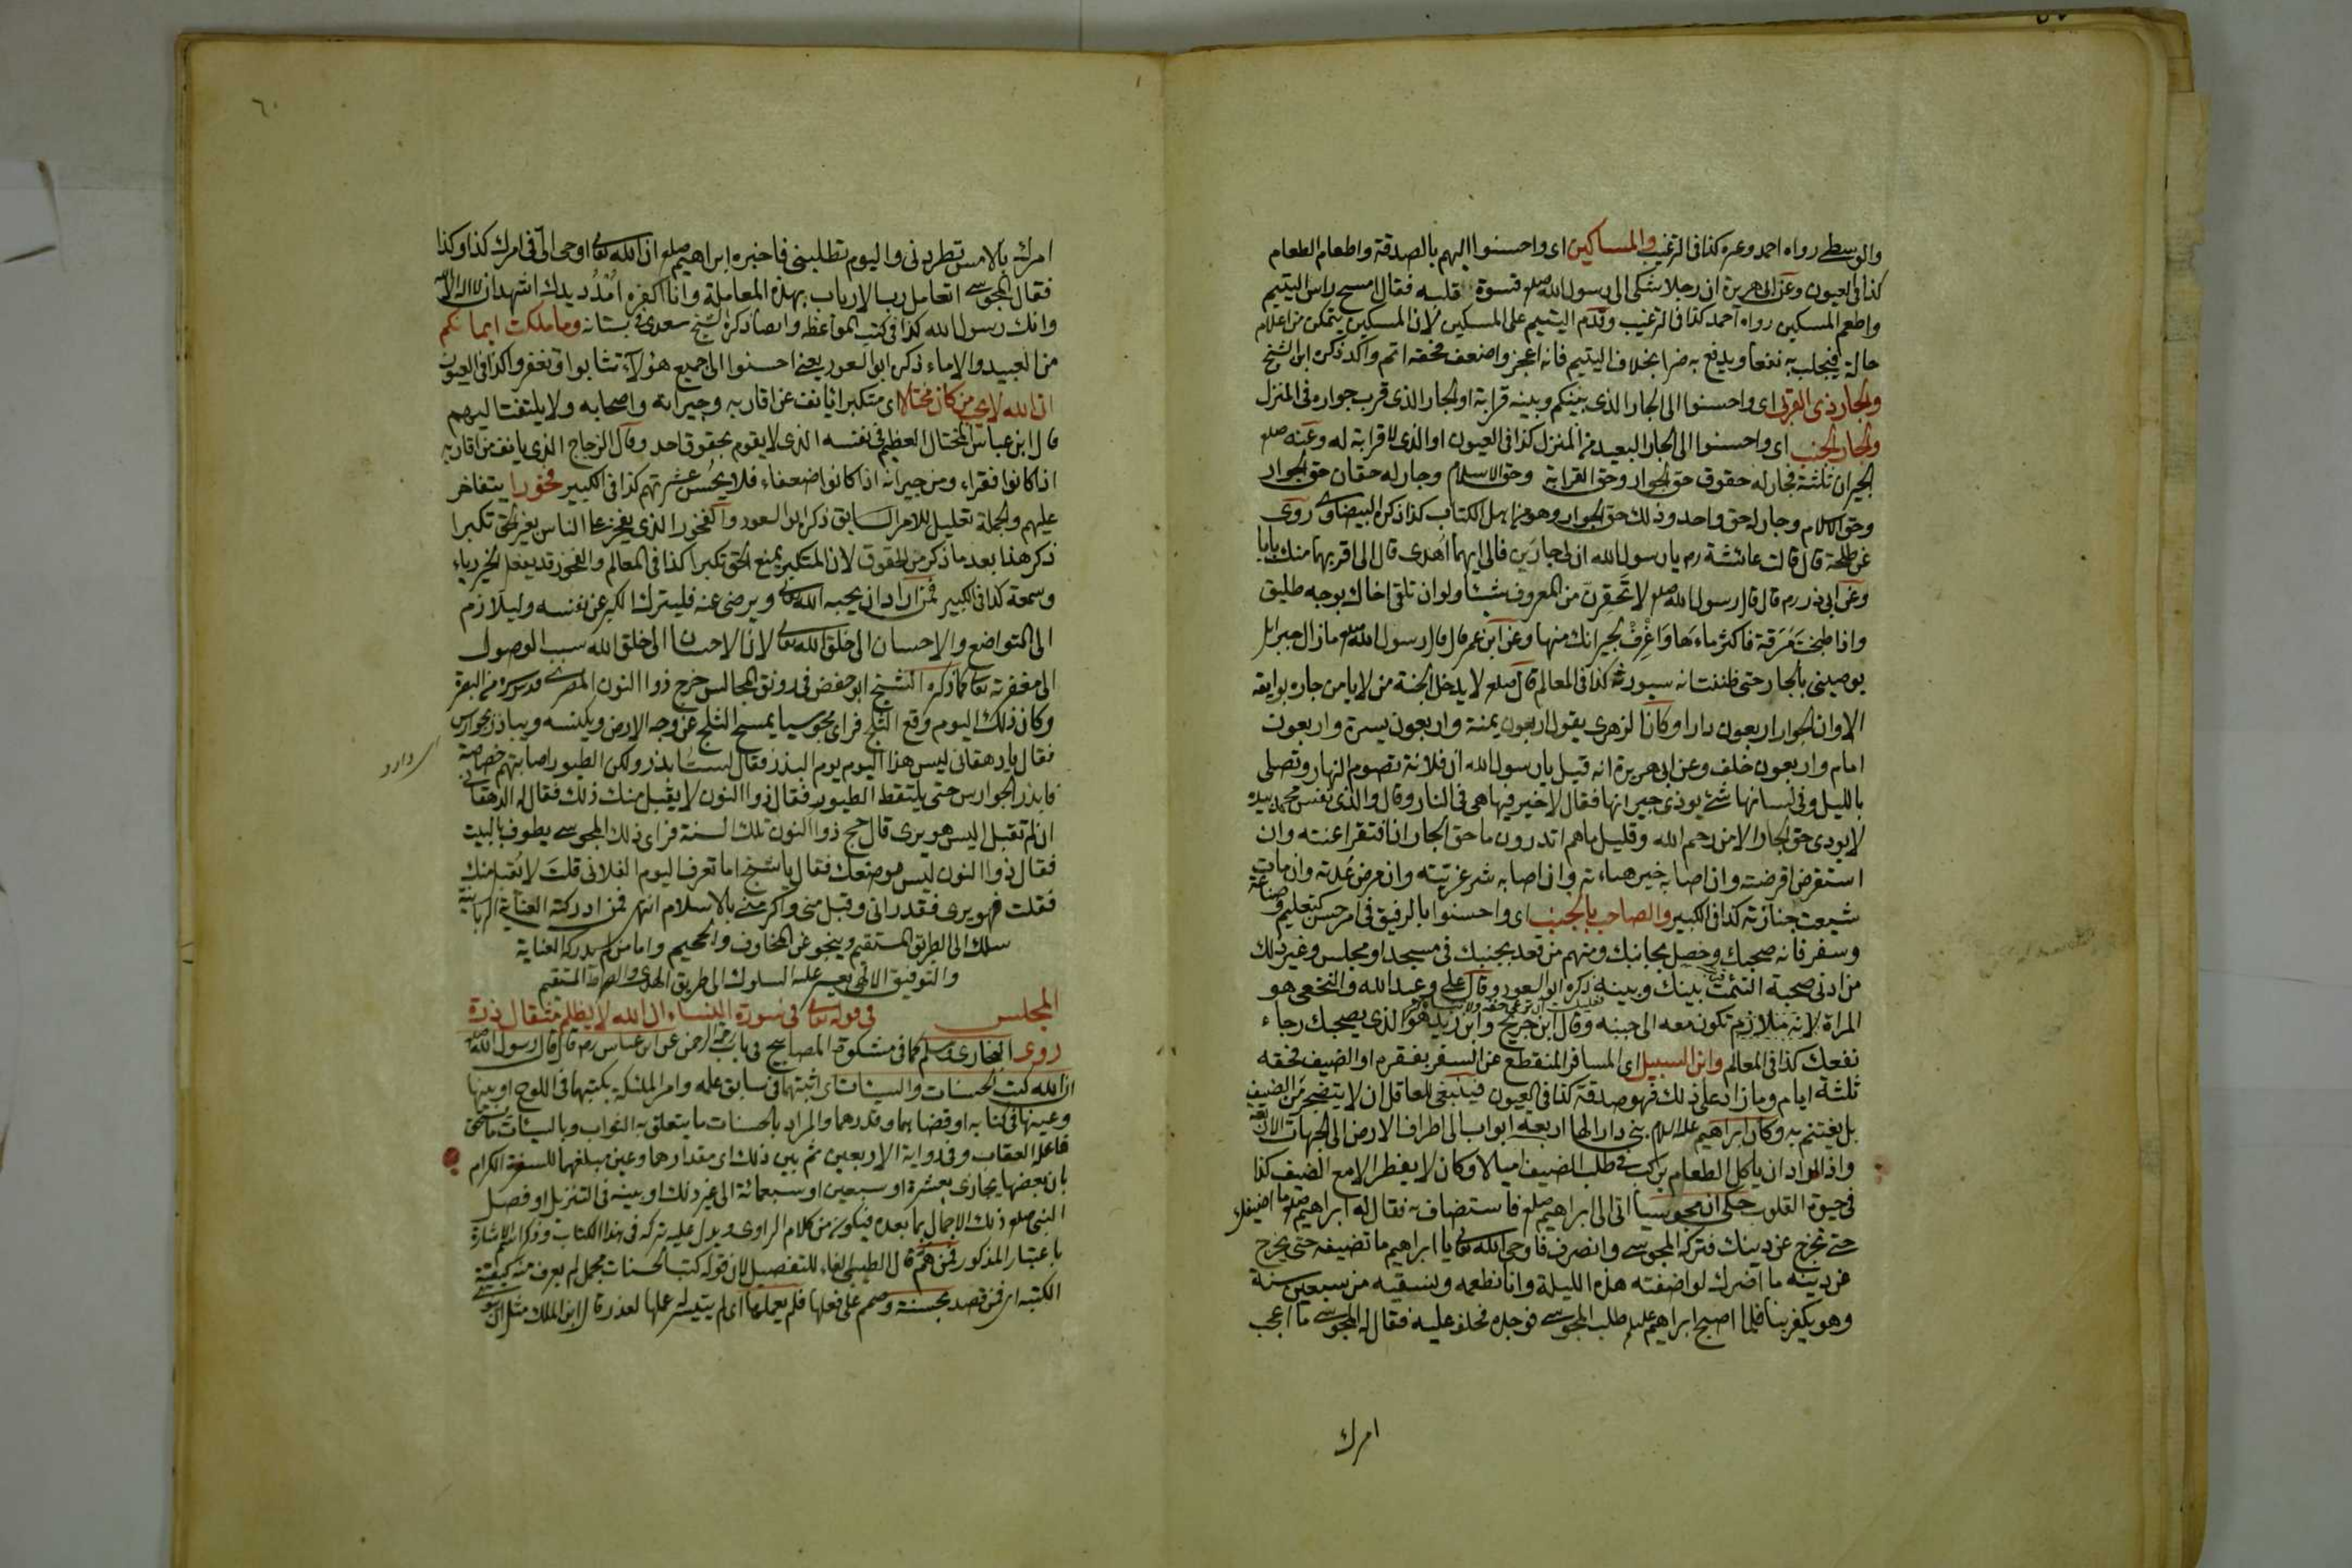 والوسطى رواه احمد وغيره كذا فى الترغيب والمساكين اى واحسنوا اليهم بالصدقة واطعام الطعام
كذا فى العيون وعن ابى هريرة ان رجلا شكى الى رسول الله صلعم قسوة قلبه فقال امسح راس اليتيم
واطعم المسكين رواه احمد كذا فى الترغيب وقدم اليتيم على المسكين لان المسكين يتمكن من اعلام
حاله فيجلب به نفعا ويدفع به ضرا بخلاف اليتيم فانه اعجز واضعف فحقه اتم وآكد ذكره ابن الشيخ
والجار ذى القربى اى واحسنوا الى الجار الذى بينكم وبينه قرابة او الجار الذى قرب جواره فى المنزل
والجار الجنب اى واحسنوا الى الجار البعيد من المنزل كذا فى العيون او الذى لا قرابة له وعنه صلعم
الجيران ثلثة فجار له حقوق حق الجوار وحق القرابة وحق الاسلام وجار له حقان حق الجوار
وحق الاسلام وجار له حق واحد وذلك حق الجوار وهو من اهل الكتاب كذا ذكره البيضاوى روى
عن طلحة قال قالت عائشة رم يا رسول الله ان لى جارين فالى ايهما اهدى قال الى اقربهما منك بابا
وعن ابى ذر رم قال قال رسول الله صلعم لا تحقرن من المعروف شيئا ولو ان تلقى اخاك بوجه طليق
واذا طبخت مرقة فاكثر ماءها واغرف لجيرانك منها وعن ابن عمر قال قال رسول الله صلعم ما زال جبرائل
يوصينى بالجار حتى ظننت انه سيورثه كذا فى المعالم قال صلعم لا يدخل الجنة من لا يامن جاره بوايقه
الا وان الجوار اربعون دارا وكان الزهرى يقول اربعون يمنة واربعون يسرة واربعون
امام واربعون خلف وعن ابى هريرة انه قيل يا رسول الله ان فلانة تصوم النهار وتصلى
بالليل وفى لسانها شئ يوذى جيرانها فقال لا خير فيها هى فى النار وقال والذى نفس محمد بيده
لا يودى حق الجار الا من رحم الله وقليل ما هم اتدرون ما حق الجار ان افتقر اغنيته وان
استقرض اقرضته وان اصابه خير هناءته وان اصابه شر عزيته وان مرض عدته وان مات
شيعت جنازته كذا فى الكبير والصاحب بالجنب اى واحسنوا بالرفيق فى امر حسن كتعليم وصناعة
وسفر فانه صحبك وحصل بجانبك ومنهم من قعد بجنبك فى مسجد او مجلس وغير ذلك
من ادنى صحبة التئمت بينك وبينه ذكره ابو السعود وقال على وعبد الله والنخعى هو
المراة لانه ملازم تكون معه الى جنبه وقال ابن جريج وابن زيد هو الذى يصحبك رجاء
نفعك كذا فى المعالم وابن السبيل اى المسافر المنقطع عن السفر بفقره او الضيف فحقه
ثلثة ايام وما زاد على ذلك فهو صدقة كذا فى العيون فينبغى للعاقل ان لا يتضجر من الضيف
بل يغتنم به وكان ابراهيم عليه السلام بنى دارا لها اربعة ابواب الى اطراف الارض الى الجهات الاربعة
واذا اراد ان ياكل الطعام يركب فى طلب الضيف اميالا وكان لا يفطر الا مع الضيف كذا
فى حيوة القلوب حكى ان مجوسيا اتى الى ابراهيم صلعم فاستضاف به فقال له ابراهيم صلعم ما اضيفك
حتى تخرج عن دينك فتركه المجوسى وانصرف فاوحى الله تعالى يا ابراهيم ما تضيفه حتى يخرج
عن دينه ما اضرك لو اضفته هذه الليلة وانا نطعمه ونسقيه من سبعين سنة
وهو يكفر بنا فلما اصبح ابراهيم عليه السلام طلب المجوسى فوجده فحلف عليه فقال له المجوسى ما اعجب
امرك
٦٠
امرك بالامس تطردنى واليوم تطلبنى فاخبره ابراهيم صلعم ان الله تعالى اوحى الى فى امرك كذا وكذا
فقال المجوسى اتعامل رب الارباب بهذه المعاملة وانا اكفره امدد يدك اشهد ان لا اله الا الله
وانك رسول الله كذا فى كتب المواعظ وايضا ذكره الشيخ سعدى فى بستانه وما ملكت ايمانكم
من العبيد والاماء ذكره ابو السعود يعنى احسنوا الى جميع هؤلاء تثابوا وتغفروا كذا فى العيون
ان الله لا يحب من كان مختالا اى متكبرا يانف عن اقاربه وجيرانه واصحابه ولا يلتفت اليهم
قال ابن عباس المختال العظيم فى نفسه الذى لا يقوم بحقوق احد وقال الزجاج الذى يانف من اقاربه
اذا كانوا فقراء ومن جيرانه اذا كانوا ضعفاء فلا يحسن عشرتهم كذا فى الكبير فخورا يتفاخر
عليهم والجملة تعليل للامر السابق ذكره ابو السعود والفخور الذى يفخر على الناس بغير الحق تكبرا
ذكر هذا بعد ما ذكر من الحقوق لان المتكبر يمنع الحق تكبرا كذا فى المعالم والفخور قد يفعل الخير رياء
وسمعة كذا فى الكبير فمن اراد ان يحبه الله تعالى ويرضى عنه فليترك الكبر عن نفسه وليلازم
الى التواضع والاحسان الى خلق الله تعالى لان الاحسان الى خلق الله سبب الوصول
الى مغفرته تعالى كما ذكره الشيخ ابو حفص فى رونق المجالس خرج ذوا النون المصرى قدس سره من البصرة
وكان ذلك اليوم وقع الثلج فراى مجوسيا يمسح الثلج عن وجه الارض ويكنسه ويباذر جوارس
فقال يا دهقانى ليس هذا اليوم يوم البذر فقال لست ابذر ولكن الطيور اصابتهم خصاصة
فابذر الجوارس حتى يلتقط الطيور فقال ذوا النون لا يقبل منك ذلك فقال له الدهقانى
ان لم تقبل اليس هو يرى قال حج ذوا النون تلك السنة فراى ذلك المجوسى يطوف بالبيت
فقال ذوا النون ليس موضعك فقال يا شيخ اما تعرف اليوم الفلانى قلت لا يقبل منك
فقلت فهو يرى فقد رانى وقبل منى واكرمنى بالاسلام انتهى فمن ادركته العناية الربانية
سلك الى الطريق المستقيم وينجو عن المخاوف والجحيم واما من لم يدركه العناية
والتوفيق الالهى يعسر عليه السلوك الى طريق الهدى والصراط المستقيم
المجلس فى قوله تعالى فى سورة النساء ان الله لا يظلم مثقال ذرة
روى البخارى ومسلم كما فى مشكوة المصابيح فى باب رحمة الرحمن عن ابن عباس رم قال قال رسول الله صلعم
ان الله كتب الحسنات والسيئات اى اثبتهما فى سابق علمه وامر الملئكة بكتبهما فى اللوح او بينها
وعينها فى كتابه او قضاهما وقدرهما والمراد بالحسنات ما يتعلق به الثواب وبالسيئات ما يستحق
فاعله العقاب وفى رواية الاربعين ثم بين ذلك اى مقدارهما وعين مبلغهما للسفرة الكرام
بان بعضها يجازى بعشرة او سبعين او سبعمائة الى غير ذلك او بينه فى التنزيل او فصل
النبى صلعم ذلك الاجمال بما بعده فيكون من كلام الراوى ويدل عليه تركه فى هذا الكتاب وذكر اسم الاشارة
باعتبار المذكور فمن هم قال الطيبى الفاء للتفصيل لان قوله كتب الحسنات مجمل لم يعرف منه كيفية
الكتبة اى فمن قصد بحسنة وصمم على فعلها فلم يعملها اى لم يتيسر له عملها لعذر قال ابن الملك مثل ان